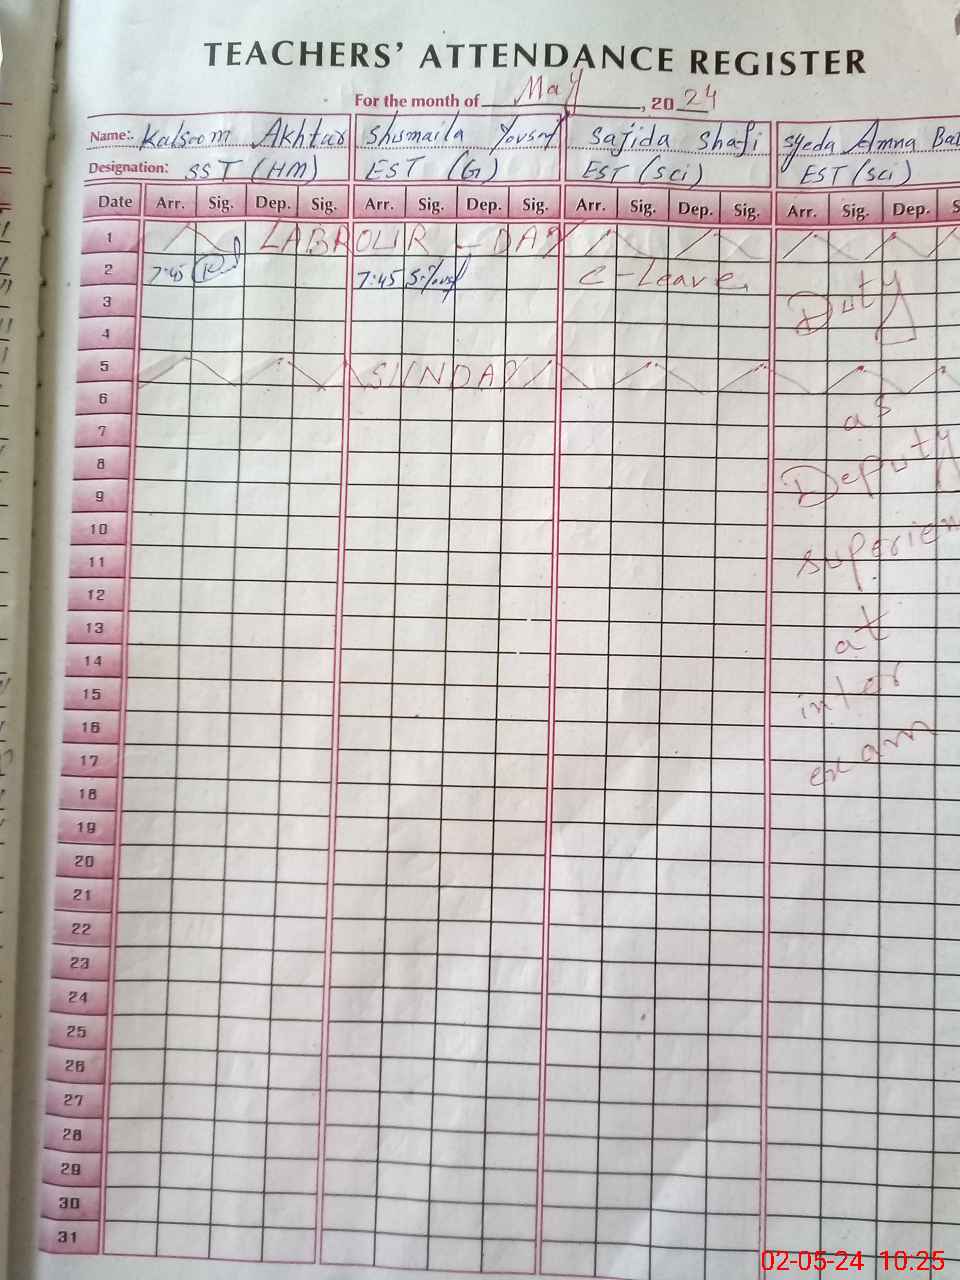 TEACHERS' ATTENDANCE REGISTER
For the month of May, 2024
Name:. Kalsoom Akhtar Shumaila Yousaf Sajida Shafi Syeda Amna
Designation: SST (HM) EST (G) EST (sci) EST (sci)
Date Arr. Sig. Dep. Sig. Arr. Sig. Dep. Sig. Arr. Sig. Dep. Sig. Arr. Sig. Dep.
1 LABROUR - DAY
2 7:45 7:45 C-Leave
3 Duty
4
5 SUNDAY
6
7 as
8
9 Deputy
10
11
12
13
14 at
15 inter
16
17 exam
18
19
20
21
22
23
24
25
26
27
28
29
30
31
02-05-24 10:25